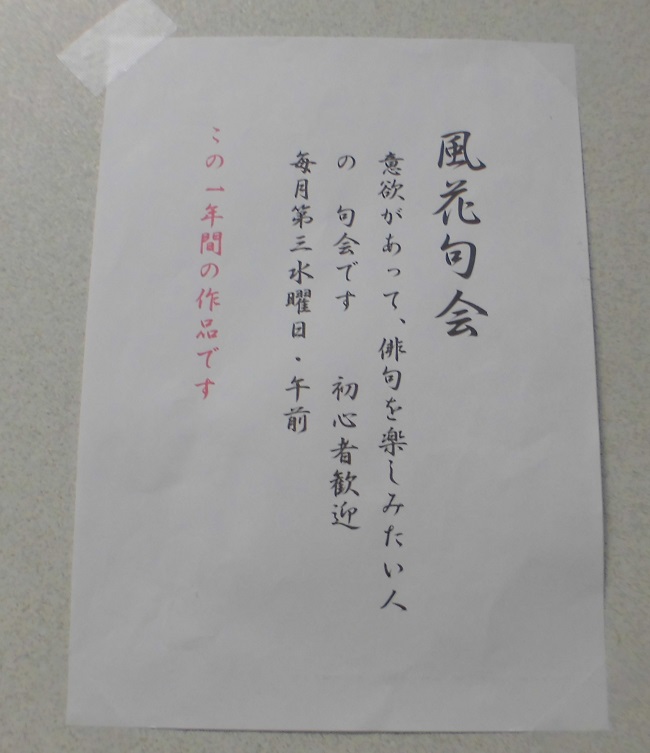 風花句会
意欲があって、俳句を楽しみたい人
の 句会です 初心者歓迎
毎月第三水曜日・午前
この一年間の作品です